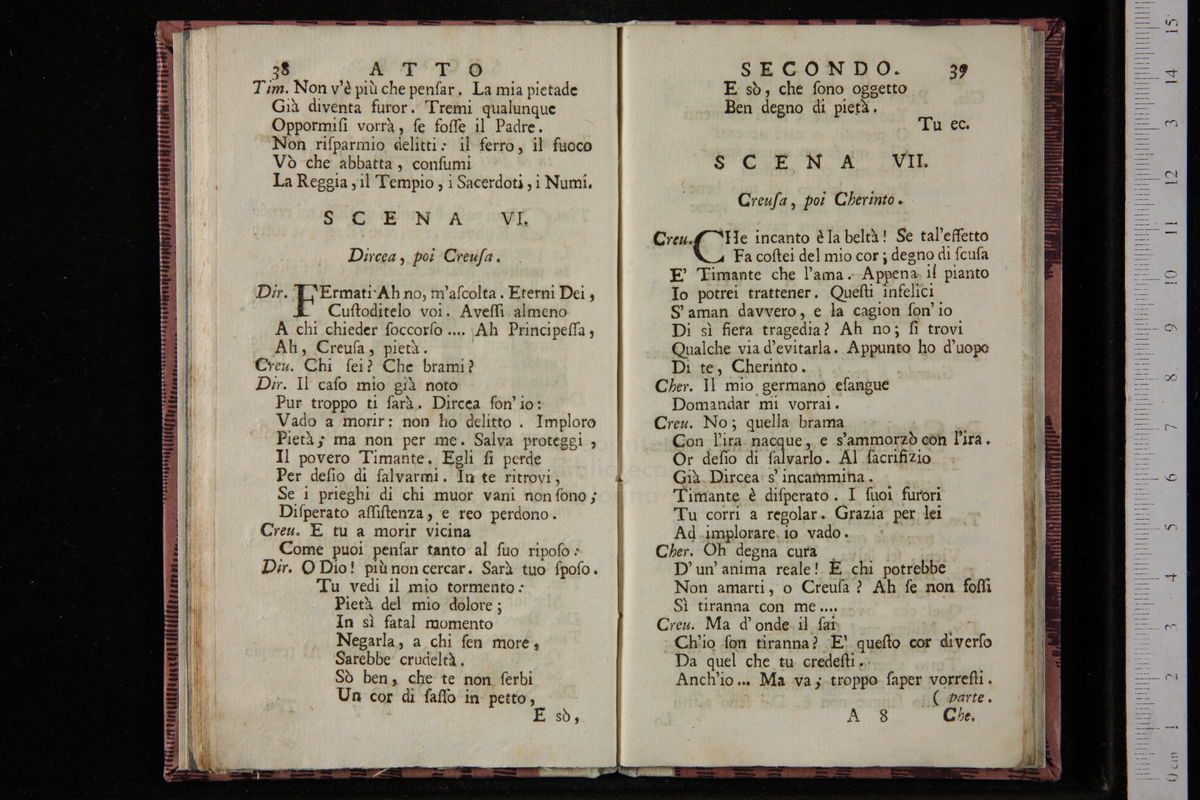 38 ATTO
Tim. Non v'è più che penſar. La mia pietade
Già diventa furor. Tremi qualunque
Oppormiſi vorrà, ſe foſſe il Padre.
Non riſparmio delitti: il ferro, il fuoco
Vò che abbatta, conſumi
La Reggia, il Tempio, i Sacerdoti, i Numi.
SCENA VI.
Dircea, poi Creuſa.
Dir. FErmati Ah no, m'aſcolta. Eterni Dei,
Cuſtoditelo voi. Aveſſi almeno
A chi chieder ſoccorſo .... Ah Principeſſa,
Ah, Creuſa, pietà.
Creu. Chi ſei? Che brami?
Dir. Il caſo mio già noto
Pur troppo ti ſarà. Dircea ſon' io:
Vado a morir: non ho delitto. Imploro
Pietà; ma non per me. Salva proteggi,
Il povero Timante. Egli ſi perde
Per deſio di ſalvarmi. In te ritrovi,
Se i prieghi di chi muor vani non ſono;
Diſperato aſſiſtenza, e reo perdono.
Creu. E tu a morir vicina
Come puoi penſar tanto al ſuo ripoſo:
Dir. O Dio! più non cercar. Sarà tuo ſpoſo.
Tu vedi il mio tormento:
Pietà del mio dolore;
In sì fatal momento
Negarla, a chi ſen more,
Sarebbe crudeltà.
Sò ben, che te non ſerbi
Un cor di ſaſſo in petto,
E sò,
SECONDO. 39
E sò, che ſono oggetto
Ben degno di pietà.
Tu ec.
SCENA VII.
Creuſa, poi Cherinto.
Creu. CHe incanto è la beltà! Se tal'effetto
Fa coſtei del mio cor; degno di ſcuſa
E' Timante che l'ama. Appena il pianto
Io potrei trattener. Queſti infelici
S'aman davvero, e la cagion ſon' io
Di sì fiera tragedia? Ah no; ſi trovi
Qualche via d'evitarla. Appunto ho d'uopo
Di te, Cherinto.
Cher. Il mio germano eſangue
Domandar mi vorrai.
Creu. No; quella brama
Con l'ira nacque, e s'ammorzò con l'ira.
Or deſio di ſalvarlo. Al ſacrifizio
Già Dircea s'incammina.
Timante è diſperato. I ſuoi furori
Tu corri a regolar. Grazia per lei
Ad implorare io vado.
Cher. Oh degna cura
D'un' anima reale! E chi potrebbe
Non amarti, o Creuſa? Ah ſe non foſſi
Sì tiranna con me ....
Creu. Ma d'onde il ſai
Ch'io ſon tiranna? E' queſto cor diverſo
Da quel che tu credeſti.
Anch'io ... Ma va; troppo ſaper vorreſti.
( parte.
A 8 Che.
15
14
13
12
11
10
9
8
7
6
5
4
3
2
1
0 cm